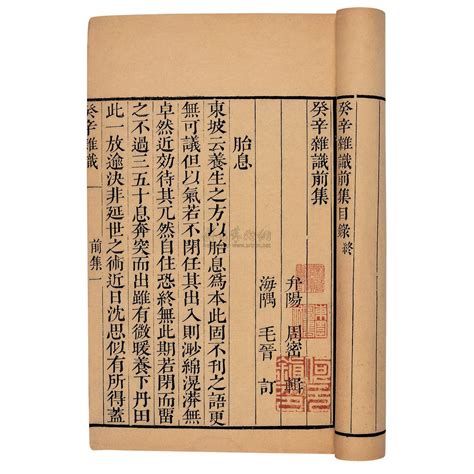 癸辛雜識前集目錄終
癸辛雜識前集
弁陽 周密 輯
海隅 毛晉 訂
胎息
東坡云養生之方以胎息爲本此固不刊之語更
無可議但以氣若不閉任其出入則渺綿滉漭無
卓然近効待其兀然自住恐終無此期若閉而留
之不過三五十息奔突而出雖有微暖養下丹田
此一放逾決非延世之術近日沈思似有所得蓋
癸辛雜識 前集一